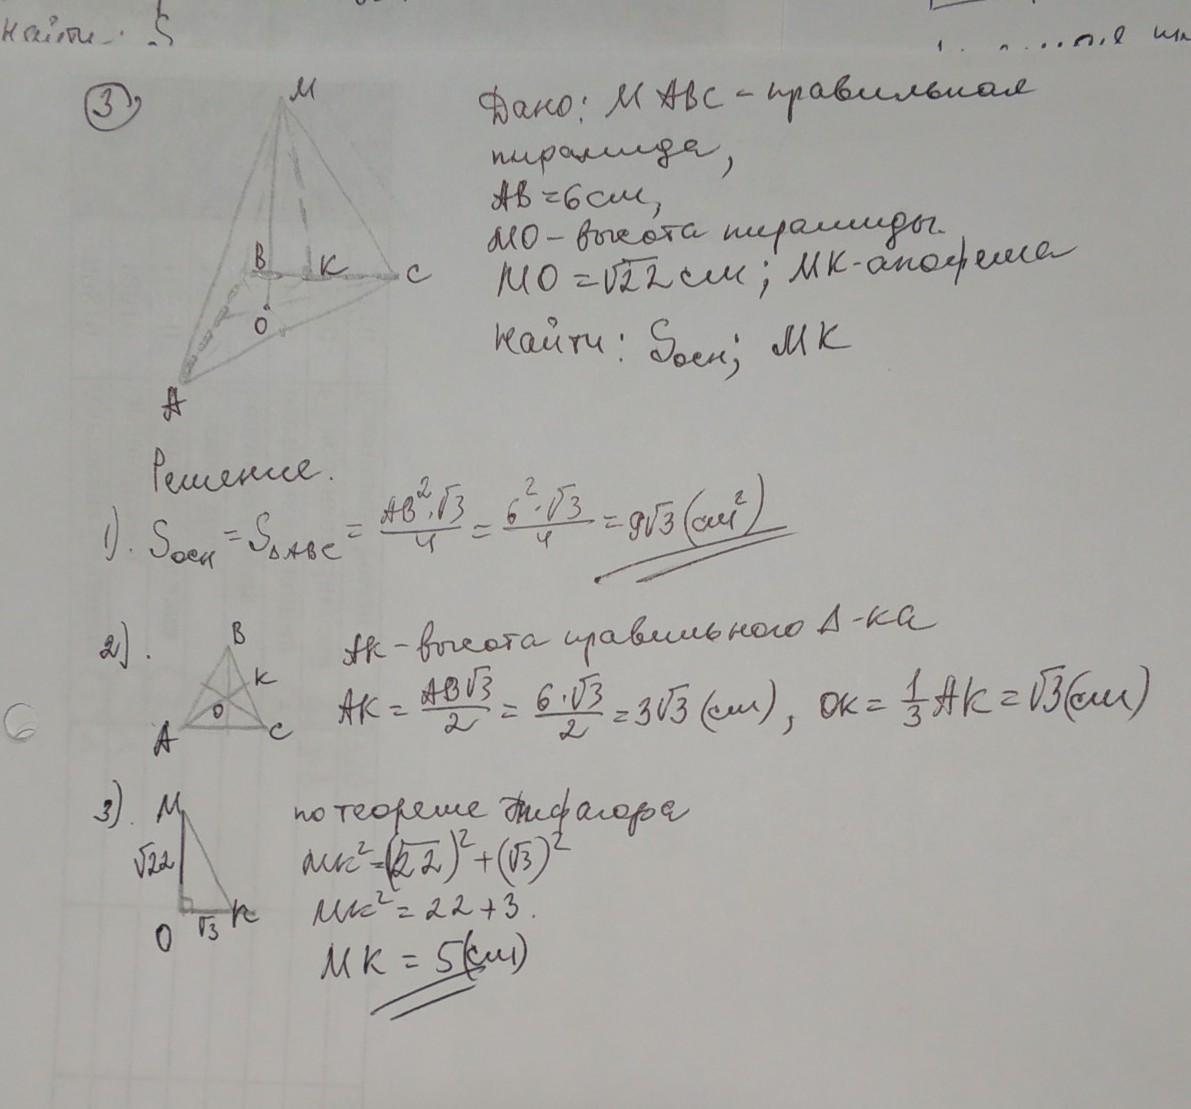 Найти: S
3)
M
B
K
C
O
A
Дано: MABC - правильная
пирамида,
AB = 6 см,
MO - высота пирамиды.
MO = √22 см; MK - апофема
Найти: Sосн; MK
Решение.
1). Sосн = S△ABC = AB²·√3/4 = 6²·√3/4 = 9√3 (см²)
2).
B
K
O
A
C
AK - высота правильного Δ-ка
AK = AB√3/2 = 6·√3/2 = 3√3 (см), OK = 1/3 AK = √3 (см)
3).
M
√22
O
√3
K
по теореме Пифагора
MK² = (√22)² + (√3)²
MK² = 22 + 3.
MK = 5 (см)